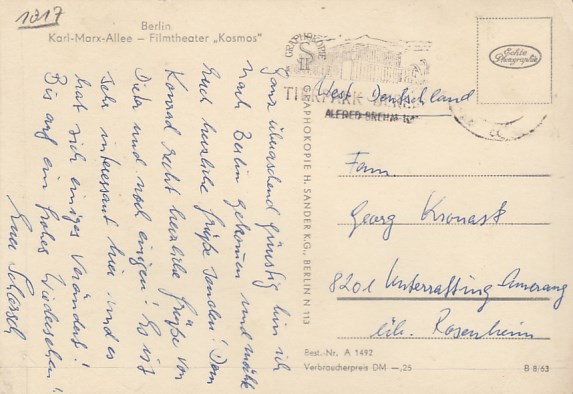 1017
Berlin
Karl-Marx-Allee – Filmtheater „Kosmos"
Ganz überraschend günstig bin ich
nach Berlin gekommen und möchte
Euch herzliche Grüße senden! Dem
Konrad recht herzliche Grüße von
Dieta und noch einigen! Es ist
sehr interessant hier und es
hat sich einiges verändert!
Bis auf ein frohes Wiedersehen!
Euer
GRAPHOKOPIE
GRAPHOKOPIE H. SANDER K.G., BERLIN N 113
TIERPARK BERLIN
ALFRED BREHM
Echte
Photographie
West Deutschland
Fam.
Georg Kronast
8201 Unterratting Amerang
üb. Rosenheim
Best.-Nr. A 1492
Verbraucherpreis DM –,25
B 8/63